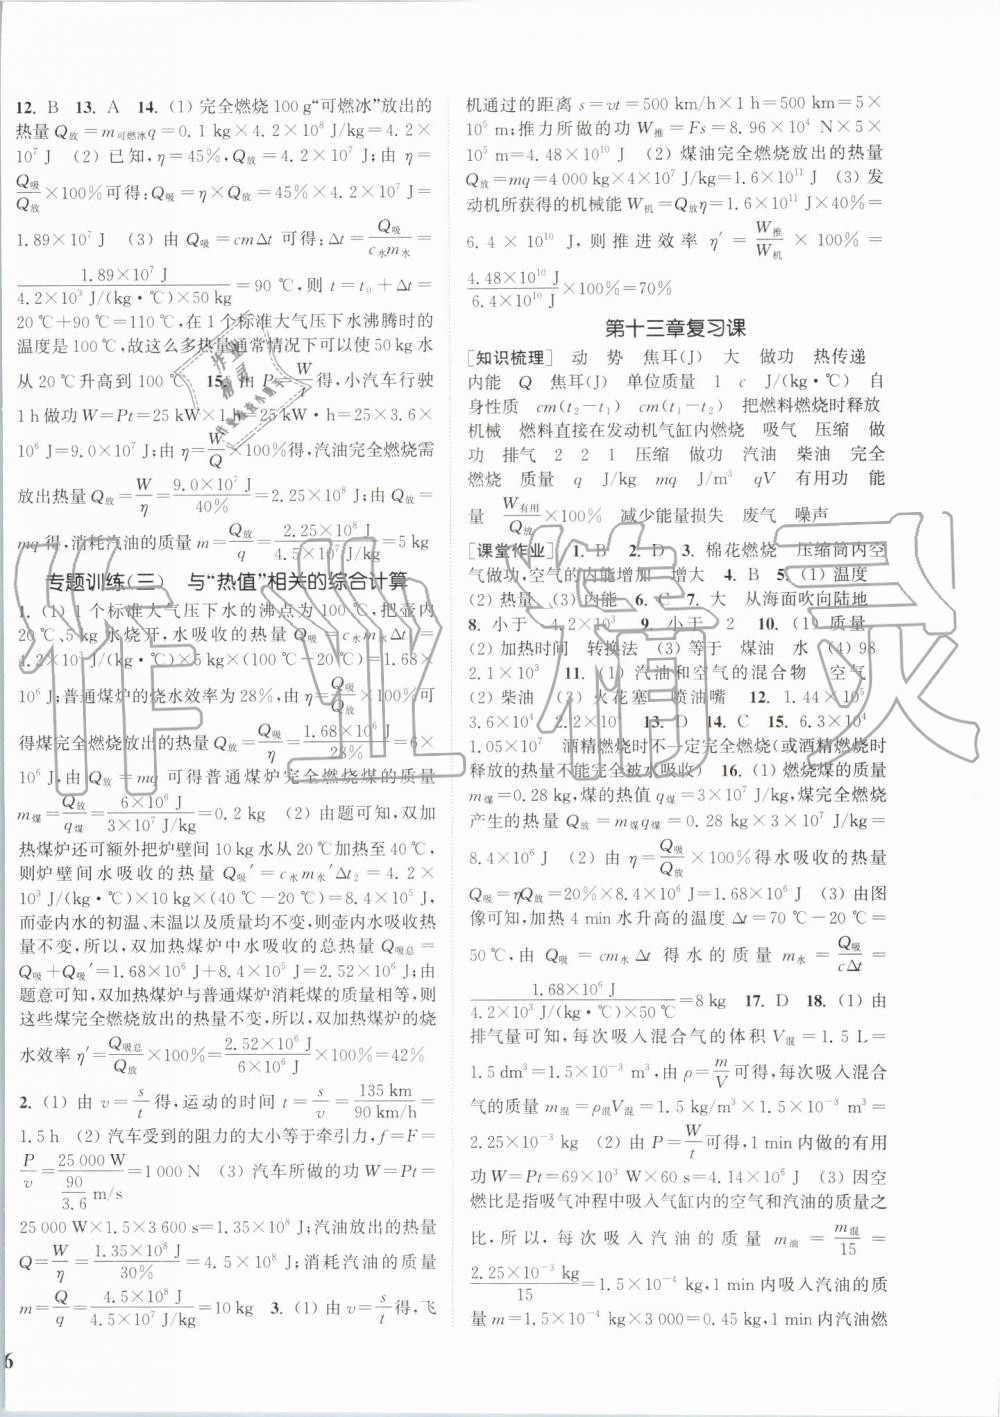 12. B 13. A 14. (1) 完全燃烧 100 g“可燃冰”放出的
热量 Q放=m可燃冰q=0.1 kg×4.2×10⁸ J/kg=4.2×
10⁷ J (2) 已知,η=45%,Q放=4.2×10⁷ J;由 η=
Q吸/Q放×100%可得:Q吸=η×Q放=45%×4.2×10⁷ J=
1.89×10⁷ J (3) 由 Q吸=cmΔt 可得:Δt=Q吸/(c水m水)=
1.89×10⁷ J/(4.2×10³ J/(kg·℃)×50 kg)=90 ℃,则 t=t₀+Δt=
20 ℃+90 ℃=110 ℃,在 1 个标准大气压下水沸腾时的
温度是 100 ℃,故这么多热量通常情况下可以使 50 kg 水
从 20 ℃升高到 100 ℃ 15. 由 P=W/t得,小汽车行驶
1 h 做功 W=Pt=25 kW×1 h=25×3.6×
10⁶ J=9.0×10⁷ J;由 η=W/Q得,汽油完全燃烧需
放出热量 Q放=W/η=9.0×10⁷ J/40%=2.25×10⁸ J;由 Q放=
mq 得,消耗汽油的质量 m=Q放/q=2.25×10⁸ J/(4.5×10⁷ J/kg)=5 kg
专题训练(三) 与“热值”相关的综合计算
1. (1) 1 个标准大气压下水的沸点为 100 ℃,把壶内
20 ℃、5 kg 水烧开,水吸收的热量 Q吸=c水m水Δt=
4.2×10³ J/(kg·℃)×5 kg×(100 ℃-20 ℃)=1.68×
10⁶ J;普通煤炉的烧水效率为 28%,由 η=Q吸/Q放×100%可
得煤完全燃烧放出的热量 Q放=Q吸/η=1.68×10⁶ J/28%=6×
10⁶ J,由 Q放=mq 可得普通煤炉完全燃烧煤的质量
m煤=Q放/q煤=6×10⁶ J/(3×10⁷ J/kg)=0.2 kg (2) 由题可知,双加
热煤炉还可额外把炉壁间 10 kg 水从 20 ℃加热至 40 ℃,
则炉壁间水吸收的热量 Q吸′=c水m水′Δt₂=4.2×
10³ J/(kg·℃)×10 kg×(40 ℃-20 ℃)=8.4×10⁵ J,
而壶内水的初温、末温以及质量均不变,则壶内水吸收热
量不变,所以,双加热煤炉中水吸收的总热量 Q吸总=
Q吸+Q吸′=1.68×10⁶ J+8.4×10⁵ J=2.52×10⁶ J;由
题意可知,双加热煤炉与普通煤炉消耗煤的质量相等,则
这些煤完全燃烧放出的热量不变,所以,双加热煤炉的烧
水效率 η′=Q吸总/Q放×100%=2.52×10⁶ J/6×10⁶ J×100%=42%
2. (1) 由 v=s/t得,运动的时间 t=s/v=135 km/90 km/h=
1.5 h (2) 汽车受到的阻力的大小等于牵引力,f=F=
P/v=25 000 W/(90/3.6 m/s)=1 000 N (3) 汽车所做的功 W=Pt=
25 000 W×1.5×3 600 s=1.35×10⁸ J;汽油放出的热量
Q=W/η=1.35×10⁸ J/30%=4.5×10⁸ J;消耗汽油的质量
m=Q/q=4.5×10⁸ J/(4.5×10⁷ J/kg)=10 kg 3. (1) 由 v=s/t得,飞
6
机通过的距离 s=vt=500 km/h×1 h=500 km=5×
10⁵ m;推力所做的功 W推=Fs=8.96×10⁴ N×5×
10⁵ m=4.48×10¹⁰ J (2) 煤油完全燃烧放出的热量
Q放=mq=4 000 kg×4×10⁷ J/kg=1.6×10¹¹ J (3) 发
动机所获得的机械能 W机=Q放η=1.6×10¹¹ J×40%=
6.4×10¹⁰ J,则推进效率 η′=W推/W机×100%=
4.48×10¹⁰ J/6.4×10¹⁰ J×100%=70%
第十三章复习课
[知识梳理] 动 势 焦耳(J) 大 做功 热传递
内能 Q 焦耳(J) 单位质量 1 c J/(kg·℃) 自
身性质 cm(t₂-t₁) cm(t₁-t₂) 把燃料燃烧时释放
机械 燃料直接在发动机气缸内燃烧 吸气 压缩 做
功 排气 2 2 1 压缩 做功 汽油 柴油 完全
燃烧 质量 q J/kg mq J/m³ qV 有用功 能
量 W有用/Q放×100% 减少能量损失 废气 噪声
[课堂作业] 1. B 2. D 3. 棉花燃烧 压缩筒内空
气做功,空气的内能增加 增大 4. B 5. (1) 温度
(2) 热量 (3) 内能 6. C 7. 大 从海面吹向陆地
8. 小于 4.2×10³ 9. 小于 2 10. (1) 质量
(2) 加热时间 转换法 (3) 等于 煤油 水 (4) 98
2.1×10³ 11. (1) 汽油和空气的混合物 空气
(2) 柴油 (3) 火花塞 喷油嘴 12. 1.44×10⁵
3.6×10⁴ 2.2×10⁵ 13. D 14. C 15. 6.3×10⁴
1.05×10⁷ 酒精燃烧时不一定完全燃烧(或酒精燃烧时
释放的热量不能完全被水吸收) 16. (1) 燃烧煤的质量
m煤=0.28 kg,煤的热值 q煤=3×10⁷ J/kg,煤完全燃烧
产生的热量 Q放=m煤q煤=0.28 kg×3×10⁷ J/kg=
8.4×10⁶ J (2) 由 η=Q吸/Q放×100%得水吸收的热量
Q吸=ηQ放=20%×8.4×10⁶ J=1.68×10⁶ J (3) 由图
像可知,加热 4 min 水升高的温度 Δt=70 ℃-20 ℃=
50 ℃,由 Q吸=cm水Δt 得水的质量 m水=Q吸/cΔt=
1.68×10⁶ J/(4.2×10³ J/(kg·℃)×50 ℃)=8 kg 17. D 18. (1) 由
排气量可知,每次吸入混合气的体积 V混=1.5 L=
1.5 dm³=1.5×10⁻³ m³,由 ρ=m/V可得,每次吸入混合
气的质量 m混=ρ混V混=1.5 kg/m³×1.5×10⁻³ m³=
2.25×10⁻³ kg (2) 由 P=W/t可得,1 min 内做的有用
功 W=Pt=69×10³ W×60 s=4.14×10⁶ J (3) 因空
燃比是指吸气冲程中吸入气缸内的空气和汽油的质量之
比,所以,每次吸入汽油的质量 m油=m混/15=
2.25×10⁻³ kg/15=1.5×10⁻⁴ kg,1 min 内吸入汽油的质
量 m=1.5×10⁻⁴ kg×3 000=0.45 kg,1 min 内汽油燃
作业精灵